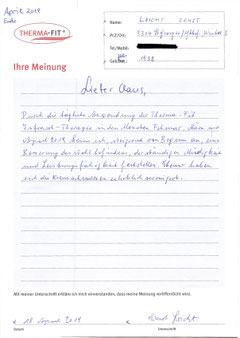 April 2019
Ende
THERMA-FIT®
Name: LEICHT ERNST
PLZ/Ort:
Tel/Mobil:
Gebdat.: 1938
Ihre Meinung
Lieber Claus,
Durch die tägliche Anwendung der Therma-Fit
Infrarot-Therapie in den Monaten Februar, März und
April 2019 kann ich, steigend von Beginn an, eine
Besserung des der ständigen Müdigkeit
und Leistungsfähigkeit feststellen. Ebenso haben
sich die Kreuzschmerzen erheblich verringert.
Mit meiner Unterschrift erkläre ich mich einverstanden, dass meine Meinung veröffentlicht wird.
18. April 2019
Datum
Unterschrift